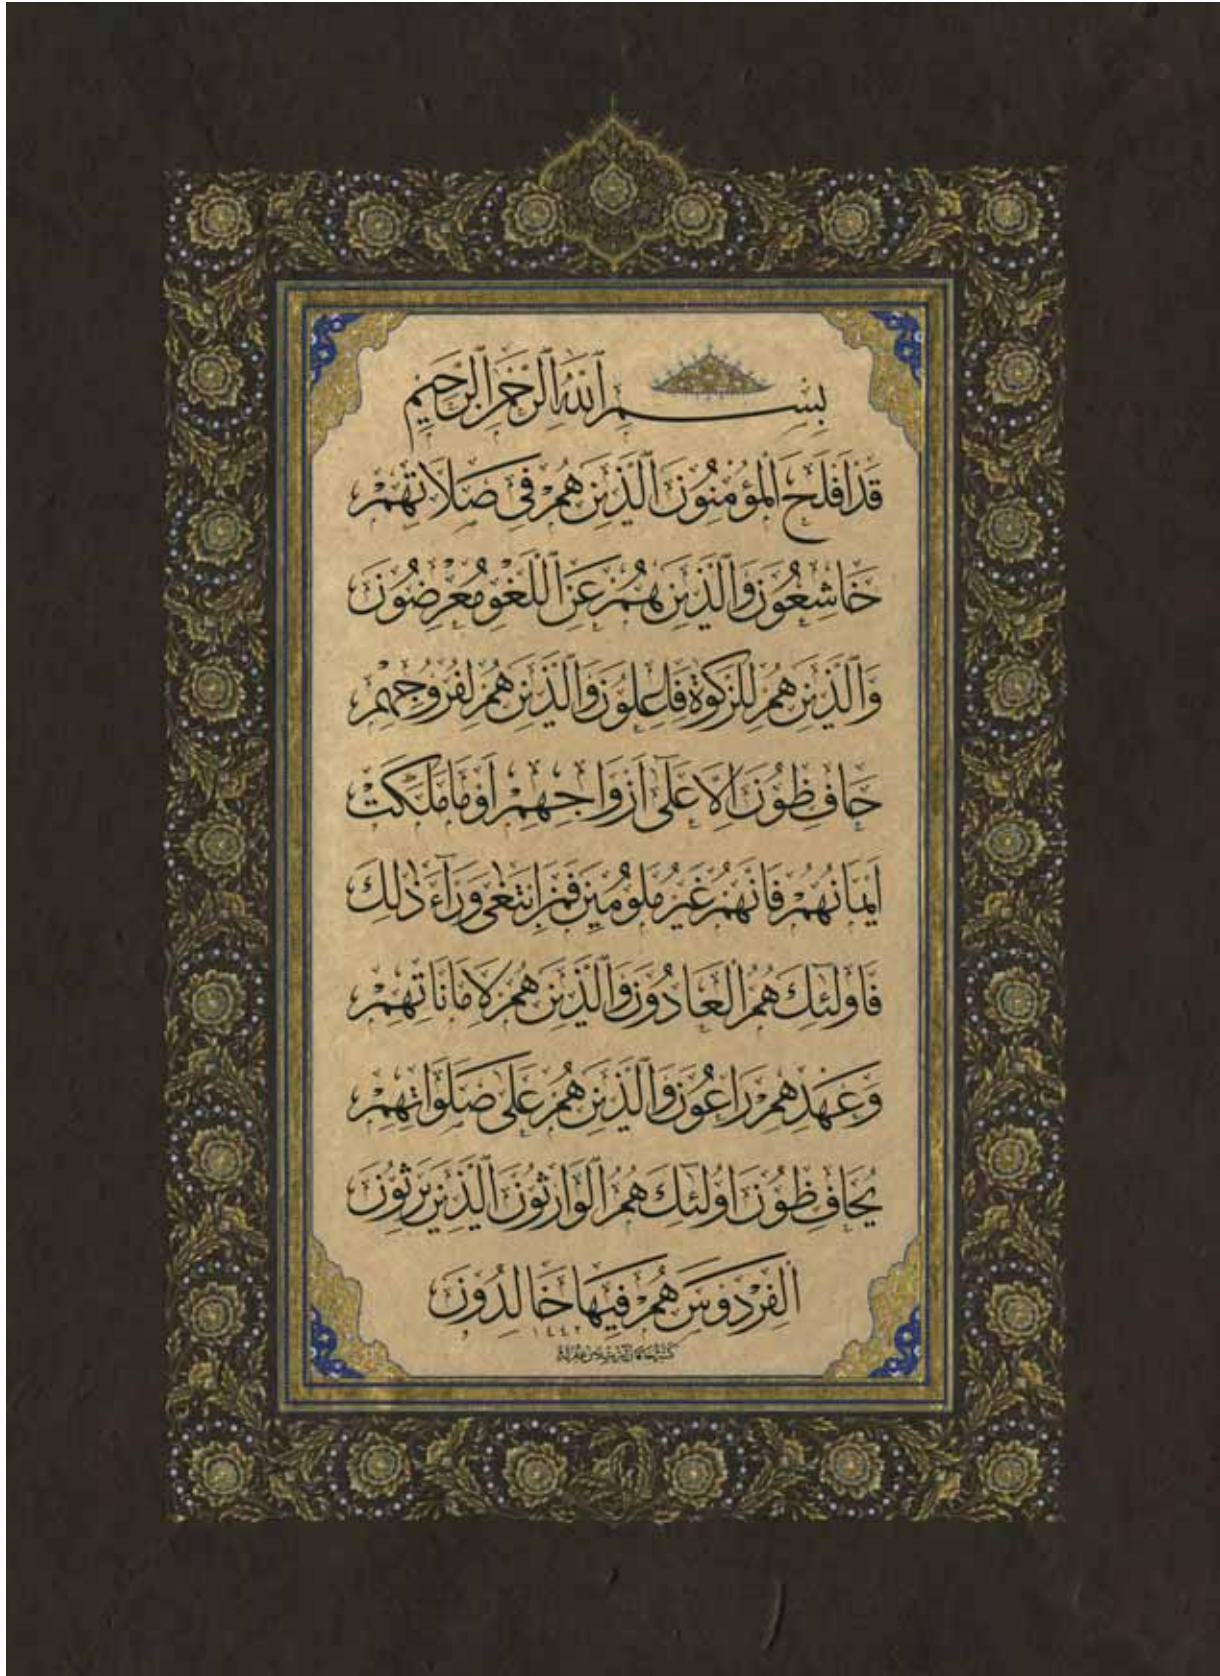 بِسْمِ اللّٰهِ الرَّحْمٰنِ الرَّحِيمِ
قَدْ اَفْلَحَ الْمُؤْمِنُونَ الَّذِينَ هُمْ فِي صَلَاتِهِمْ
خَاشِعُونَ وَالَّذِينَ هُمْ عَنِ اللَّغْوِ مُعْرِضُونَ
وَالَّذِينَ هُمْ لِلزَّكٰوةِ فَاعِلُونَ وَالَّذِينَ هُمْ لِفُرُوجِهِمْ
حَافِظُونَ اِلَّا عَلٰٓى اَزْوَاجِهِمْ اَوْ مَا مَلَكَتْ
اَيْمَانُهُمْ فَاِنَّهُمْ غَيْرُ مَلُومِينَ فَمَنِ ابْتَغٰى وَرَٓاءَ ذٰلِكَ
فَاُولٰٓئِكَ هُمُ الْعَادُونَ وَالَّذِينَ هُمْ لِاَمَانَاتِهِمْ
وَعَهْدِهِمْ رَاعُونَ وَالَّذِينَ هُمْ عَلٰى صَلَوَاتِهِمْ
يُحَافِظُونَ اُولٰٓئِكَ هُمُ الْوَارِثُونَ الَّذِينَ يَرِثُونَ
الْفِرْدَوْسَ هُمْ فِيهَا خَالِدُونَ
١٤٤٢